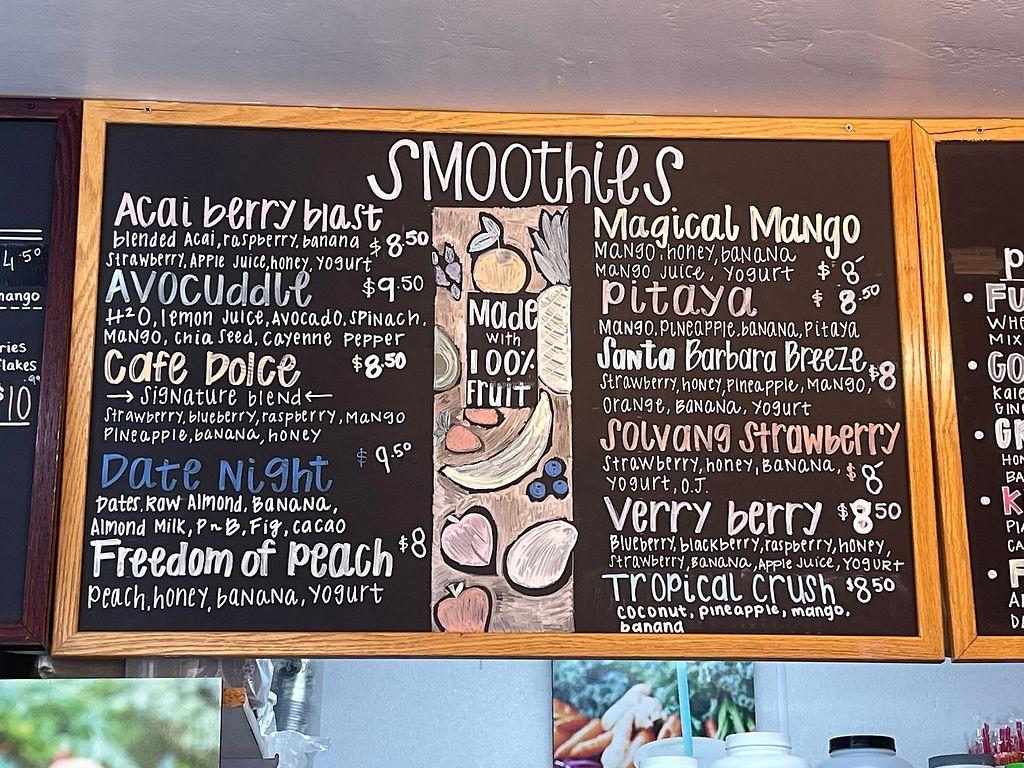 Smoothies
Acai berry blast
blended Acai, raspberry, banana
$8.50
strawberry, Apple Juice, honey, Yogurt
Avocuddle $9.50
H²O, lemon Juice, Avocado, spinach,
Mango, chia seed, cayenne pepper
Cafe Dolce $8.50
→ signature blend ←
strawberry, blueberry, raspberry, Mango
Pineapple, banana, honey
Date Night $9.50
Dates, Raw Almond, Banana,
Almond Milk, P~B, Fig, cacao
Freedom of Peach $8
peach, honey, banana, Yogurt
Made
with
100%
Fruit
Magical Mango
Mango, honey, banana
Mango Juice, Yogurt $8
Pitaya $8.50
Mango, Pineapple, banana, Pitaya
Santa Barbara Breeze $8
Strawberry, honey, pineapple, Mango,
Orange, Banana, Yogurt
Solvang Strawberry
Strawberry, honey, Banana, $8
Yogurt, O.J.
Verry berry $8.50
Blueberry, blackberry, raspberry, honey,
Strawberry, Banana, Apple Juice, Yogurt
Tropical Crush $8.50
coconut, pineapple, mango,
banana
4.50
$10